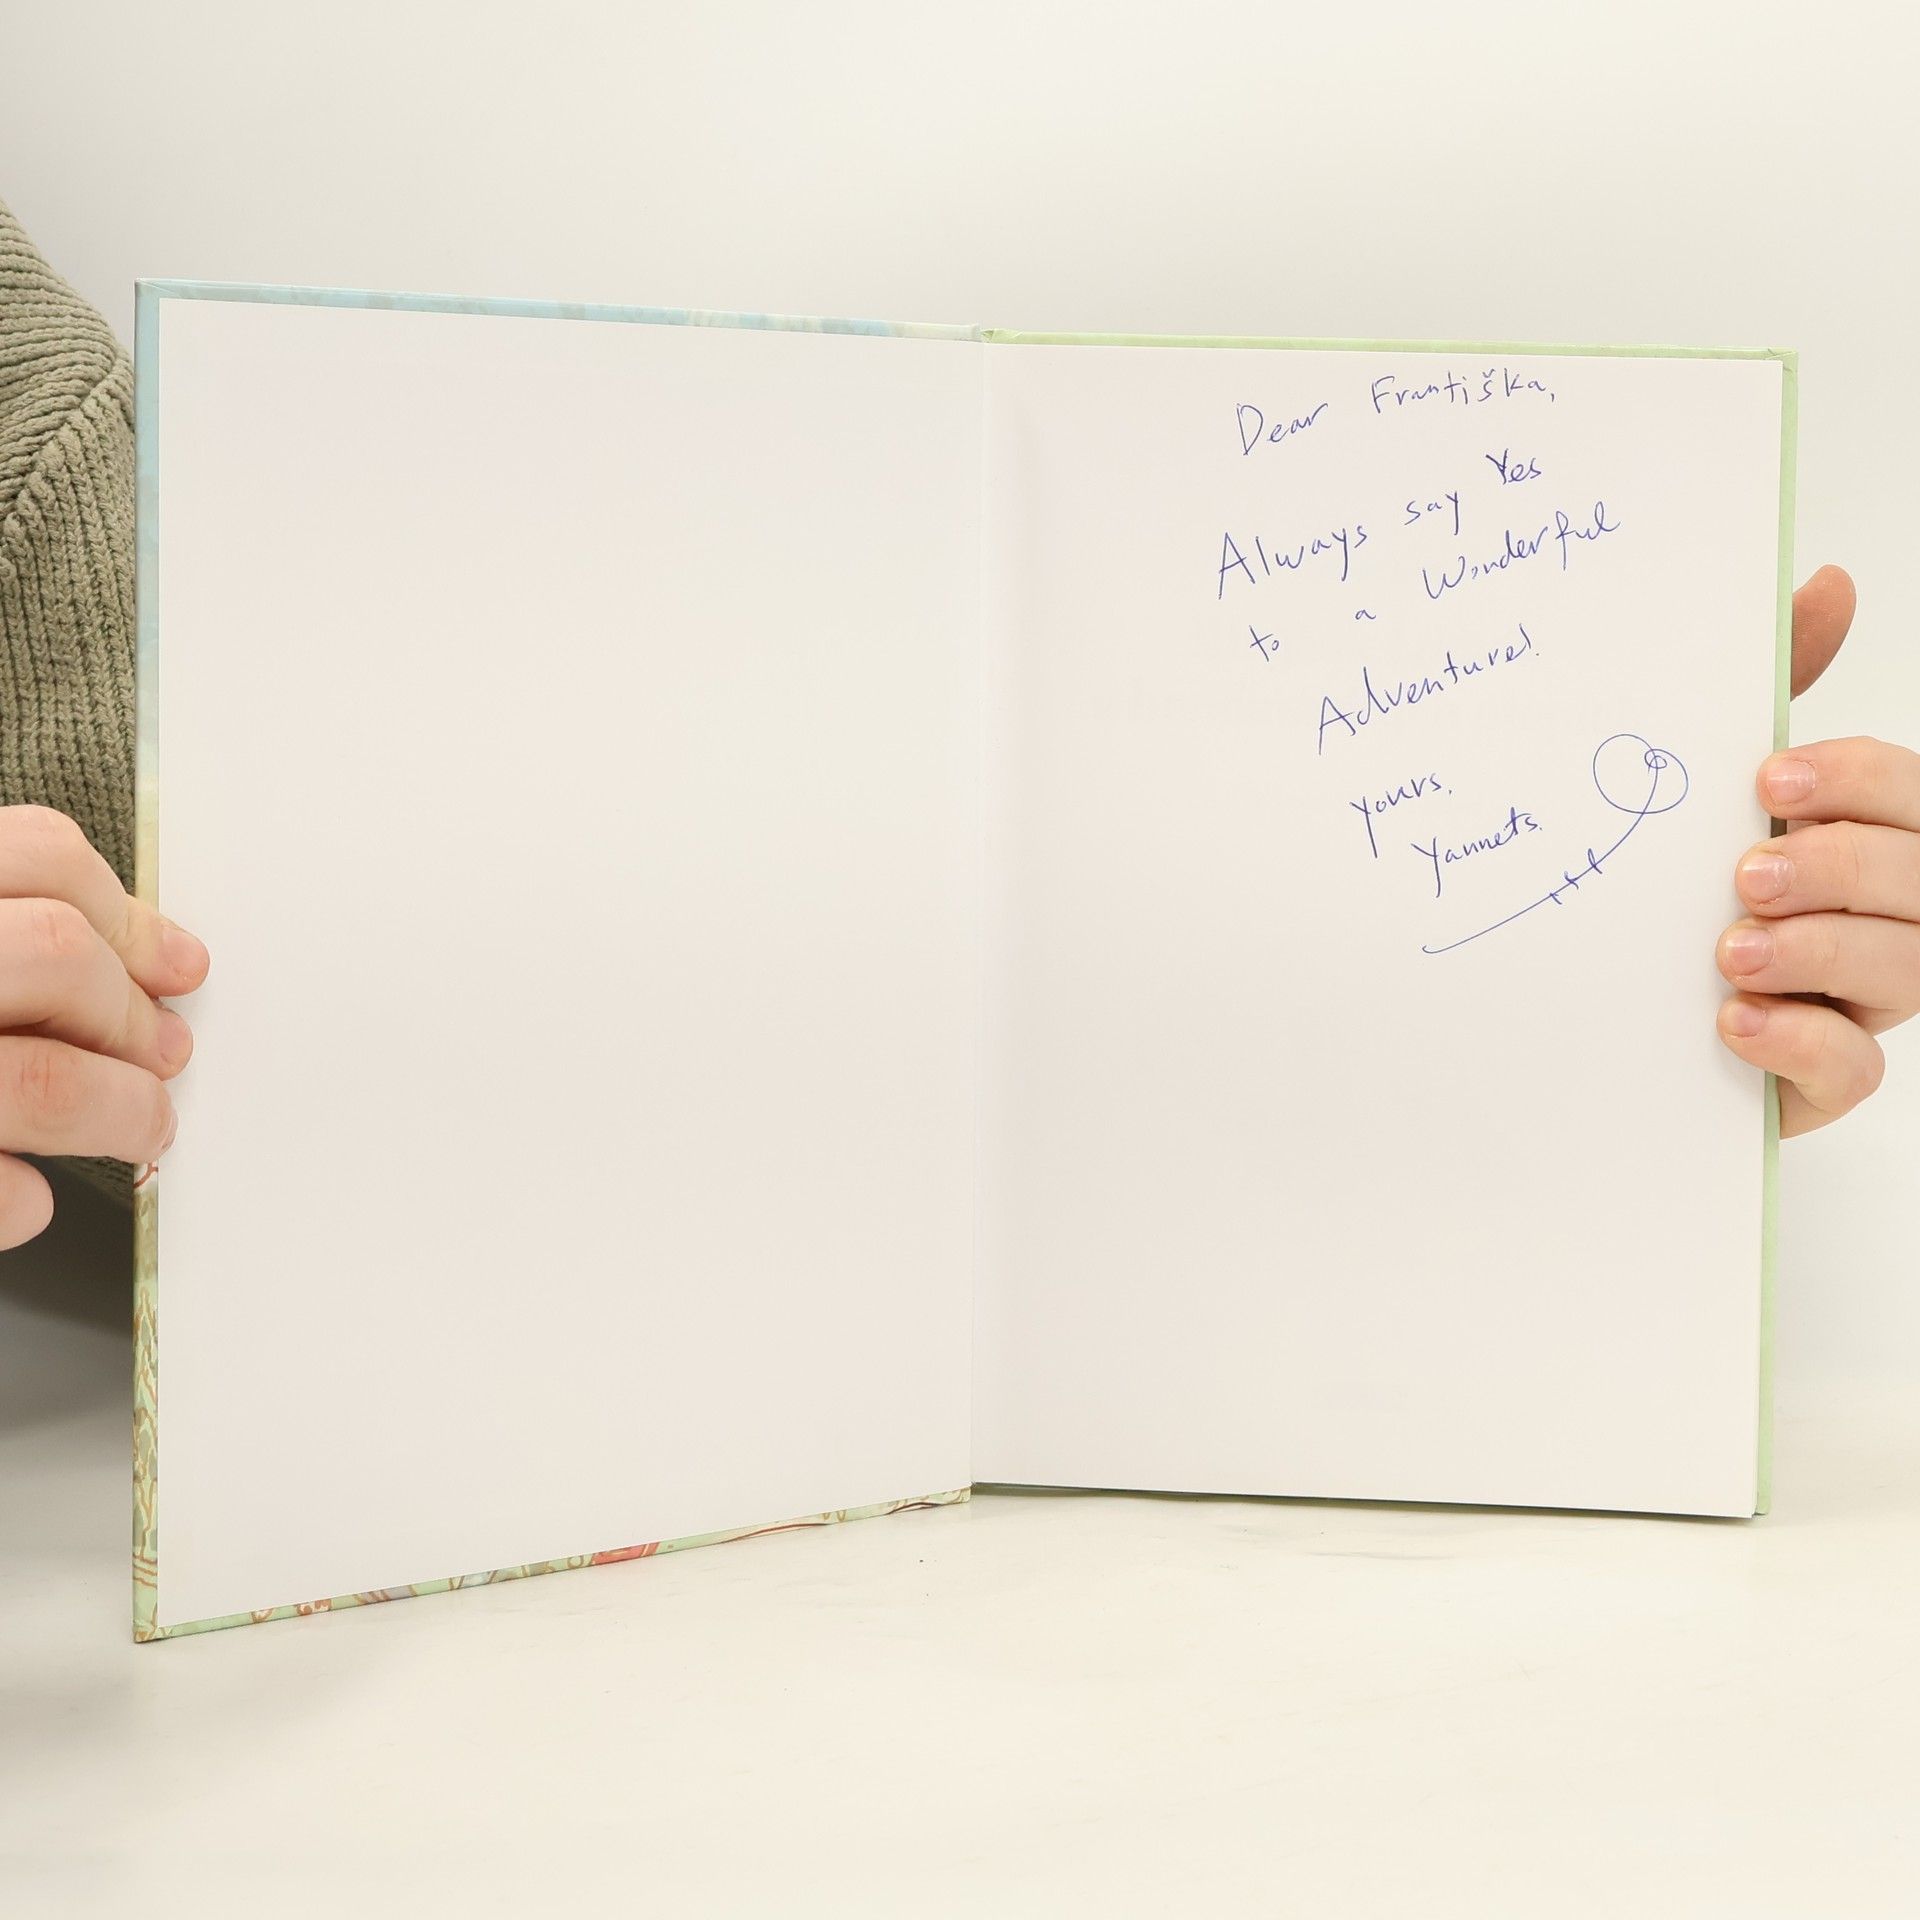 Dear Františka,
Always say Yes
to a Wonderful
Adventure!
yours,
Yannets.